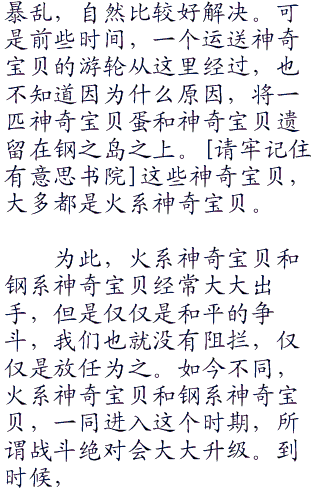 暴乱，自然比较好解决。可
是前些时间，一个运送神奇
宝贝的游轮从这里经过，也
不知道因为什么原因，将一
匹神奇宝贝蛋和神奇宝贝遗
留在钢之岛之上。[请牢记住
有意思书院]这些神奇宝贝，
大多都是火系神奇宝贝。
为此，火系神奇宝贝和
钢系神奇宝贝经常大大出
手，但是仅仅是和平的争
斗，我们也就没有阻拦，仅
仅是放任为之。如今不同，
火系神奇宝贝和钢系神奇宝
贝，一同进入这个时期，所
谓战斗绝对会大大升级。到
时候，